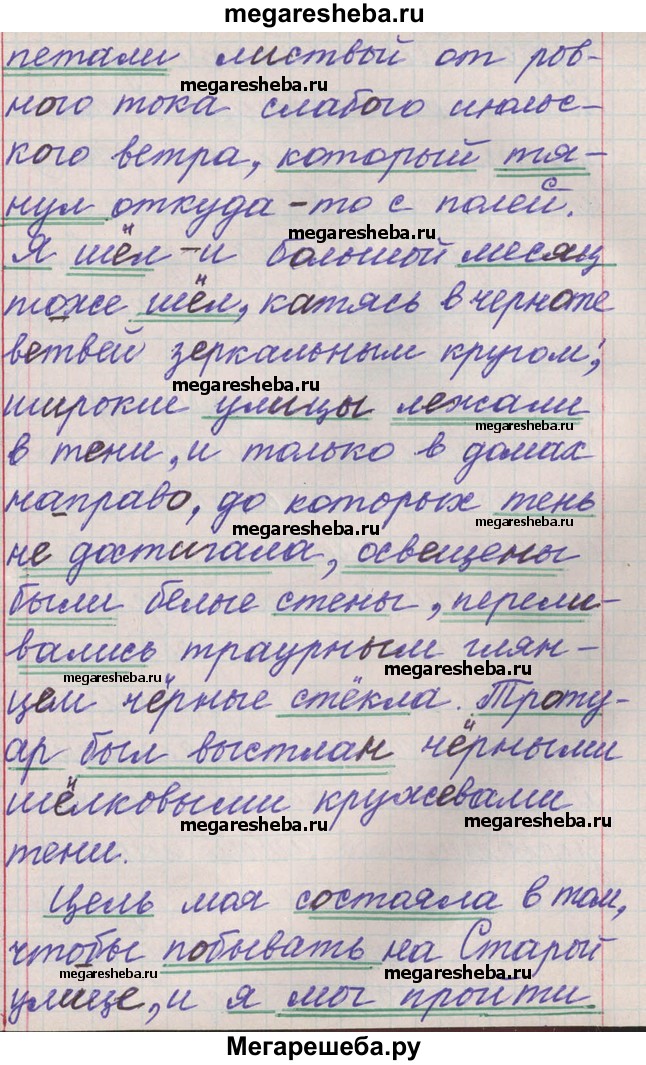 megaresheba.ru
петали листвой от ров-
megaresheba.ru
ного тока слабого июльс-
кого ветра, который тя-
megaresheba.ru
нул откуда-то с полей.
megaresheba.ru
Я шёл – и большой месяц
тоже шёл, катясь в черноте
ветвей зеркальным кругом;
megaresheba.ru
широкие улицы лежали
megaresheba.ru
в тени, и только в домах
направо, до которых тень
megaresheba.ru
megaresheba.ru
не достигала, освещены
были белые стены, перели-
вались траурным глян-
megaresheba.ru
megaresheba.ru
цем чёрные стёкла. Троту-
ар был выстлан чёрными
шёлковыми кружевами
megaresheba.ru
megaresheba.ru
тени.
Цель моя состояла в том,
чтобы побывать на Старой
megaresheba.ru
megaresheba.ru
улице, и я мог пройти
Мегарешеба.ру